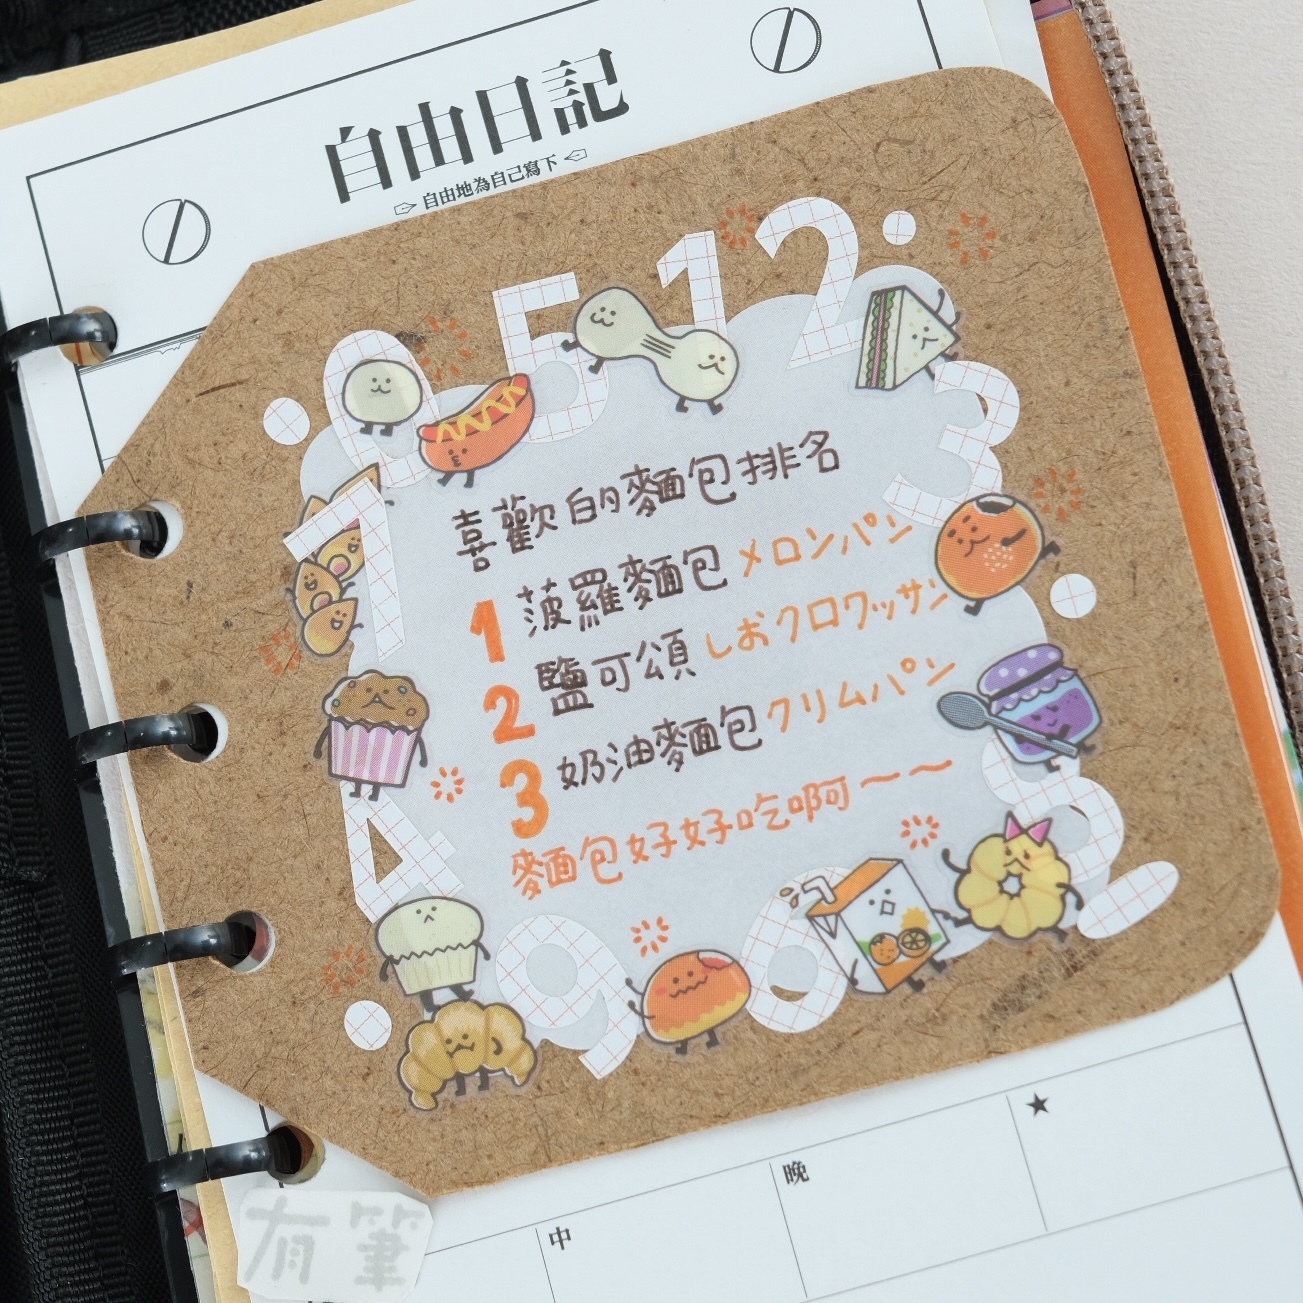 自由日記
自由地為自己寫下
0 5 1 2
喜歡的麵包排名
1 菠羅麵包 メロンパン
2 鹽可頌 しおクロワッサン
3 奶油麵包 クリムパン
麵包好好吃啊～～
7
3
4
9
0
8
有筆
中
晚
★